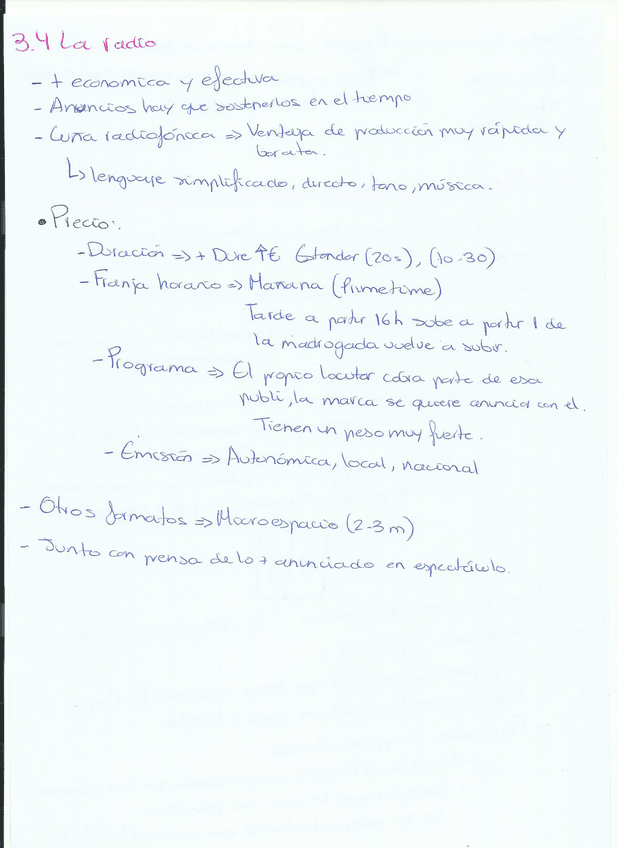 3.4 La radio
- + economica y efectiva
- Anuncios hay que sostenerlos en el tiempo
- Cuña radiofónica => Ventaja de producción muy rápida y
barata.
↳ lenguaje simplificado, directo, tono, música.
• Precio:.
- Duración => + Dure ↑€ Estandar (20s), (10-30)
- Franja horario => Mañana (Primetime)
Tarde a partir 16h sube a partir 1 de
la madrogada vuelve a subir.
- Programa => El propio locutor cobra parte de esa
publi, la marca se quiere anunciar con el.
Tienen un peso muy fuerte.
- Emisión => Autonómica, local, nacional
- Otros formatos => Microespacio (2-3 m)
- Junto con prensa de lo + anunciado en espectáculo.